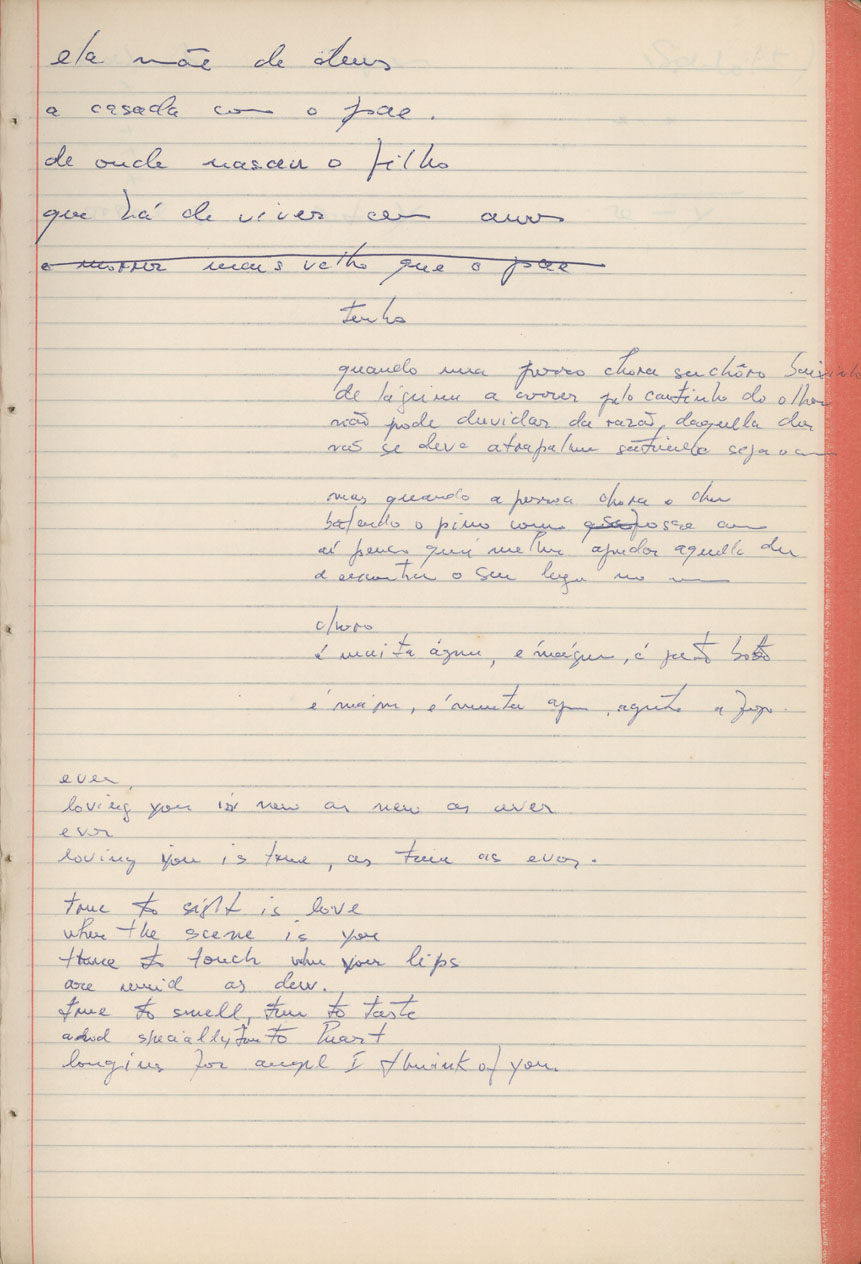 ela mãe de deus
a casada com o pae.
de onde nasceu o filho
que há de viver cem anos
e morrer mais velho que o pae
tenho
quando uma pessoa chora seu chôro baixinho
de lágrima a correr pelo cantinho do olhar
não pode duvidar da razão daquella dor
não se deve atrapalhar sentindo seja o
mas quando a pessoa chora o
batendo o pino com
aí penso que é melhor ajudar aquella dor
a encontrar o seu lugar no
choro
é muita água, é mágua, é
é mágua, é muita agua,
ever
loving you is new as new as ever
ever
loving you is true, as true as ever.
true to sight is love
when the scene is you
true to touch when your lips
are as dew.
true to smell, true to taste
and specially true to heart
longing for angel I think of you.